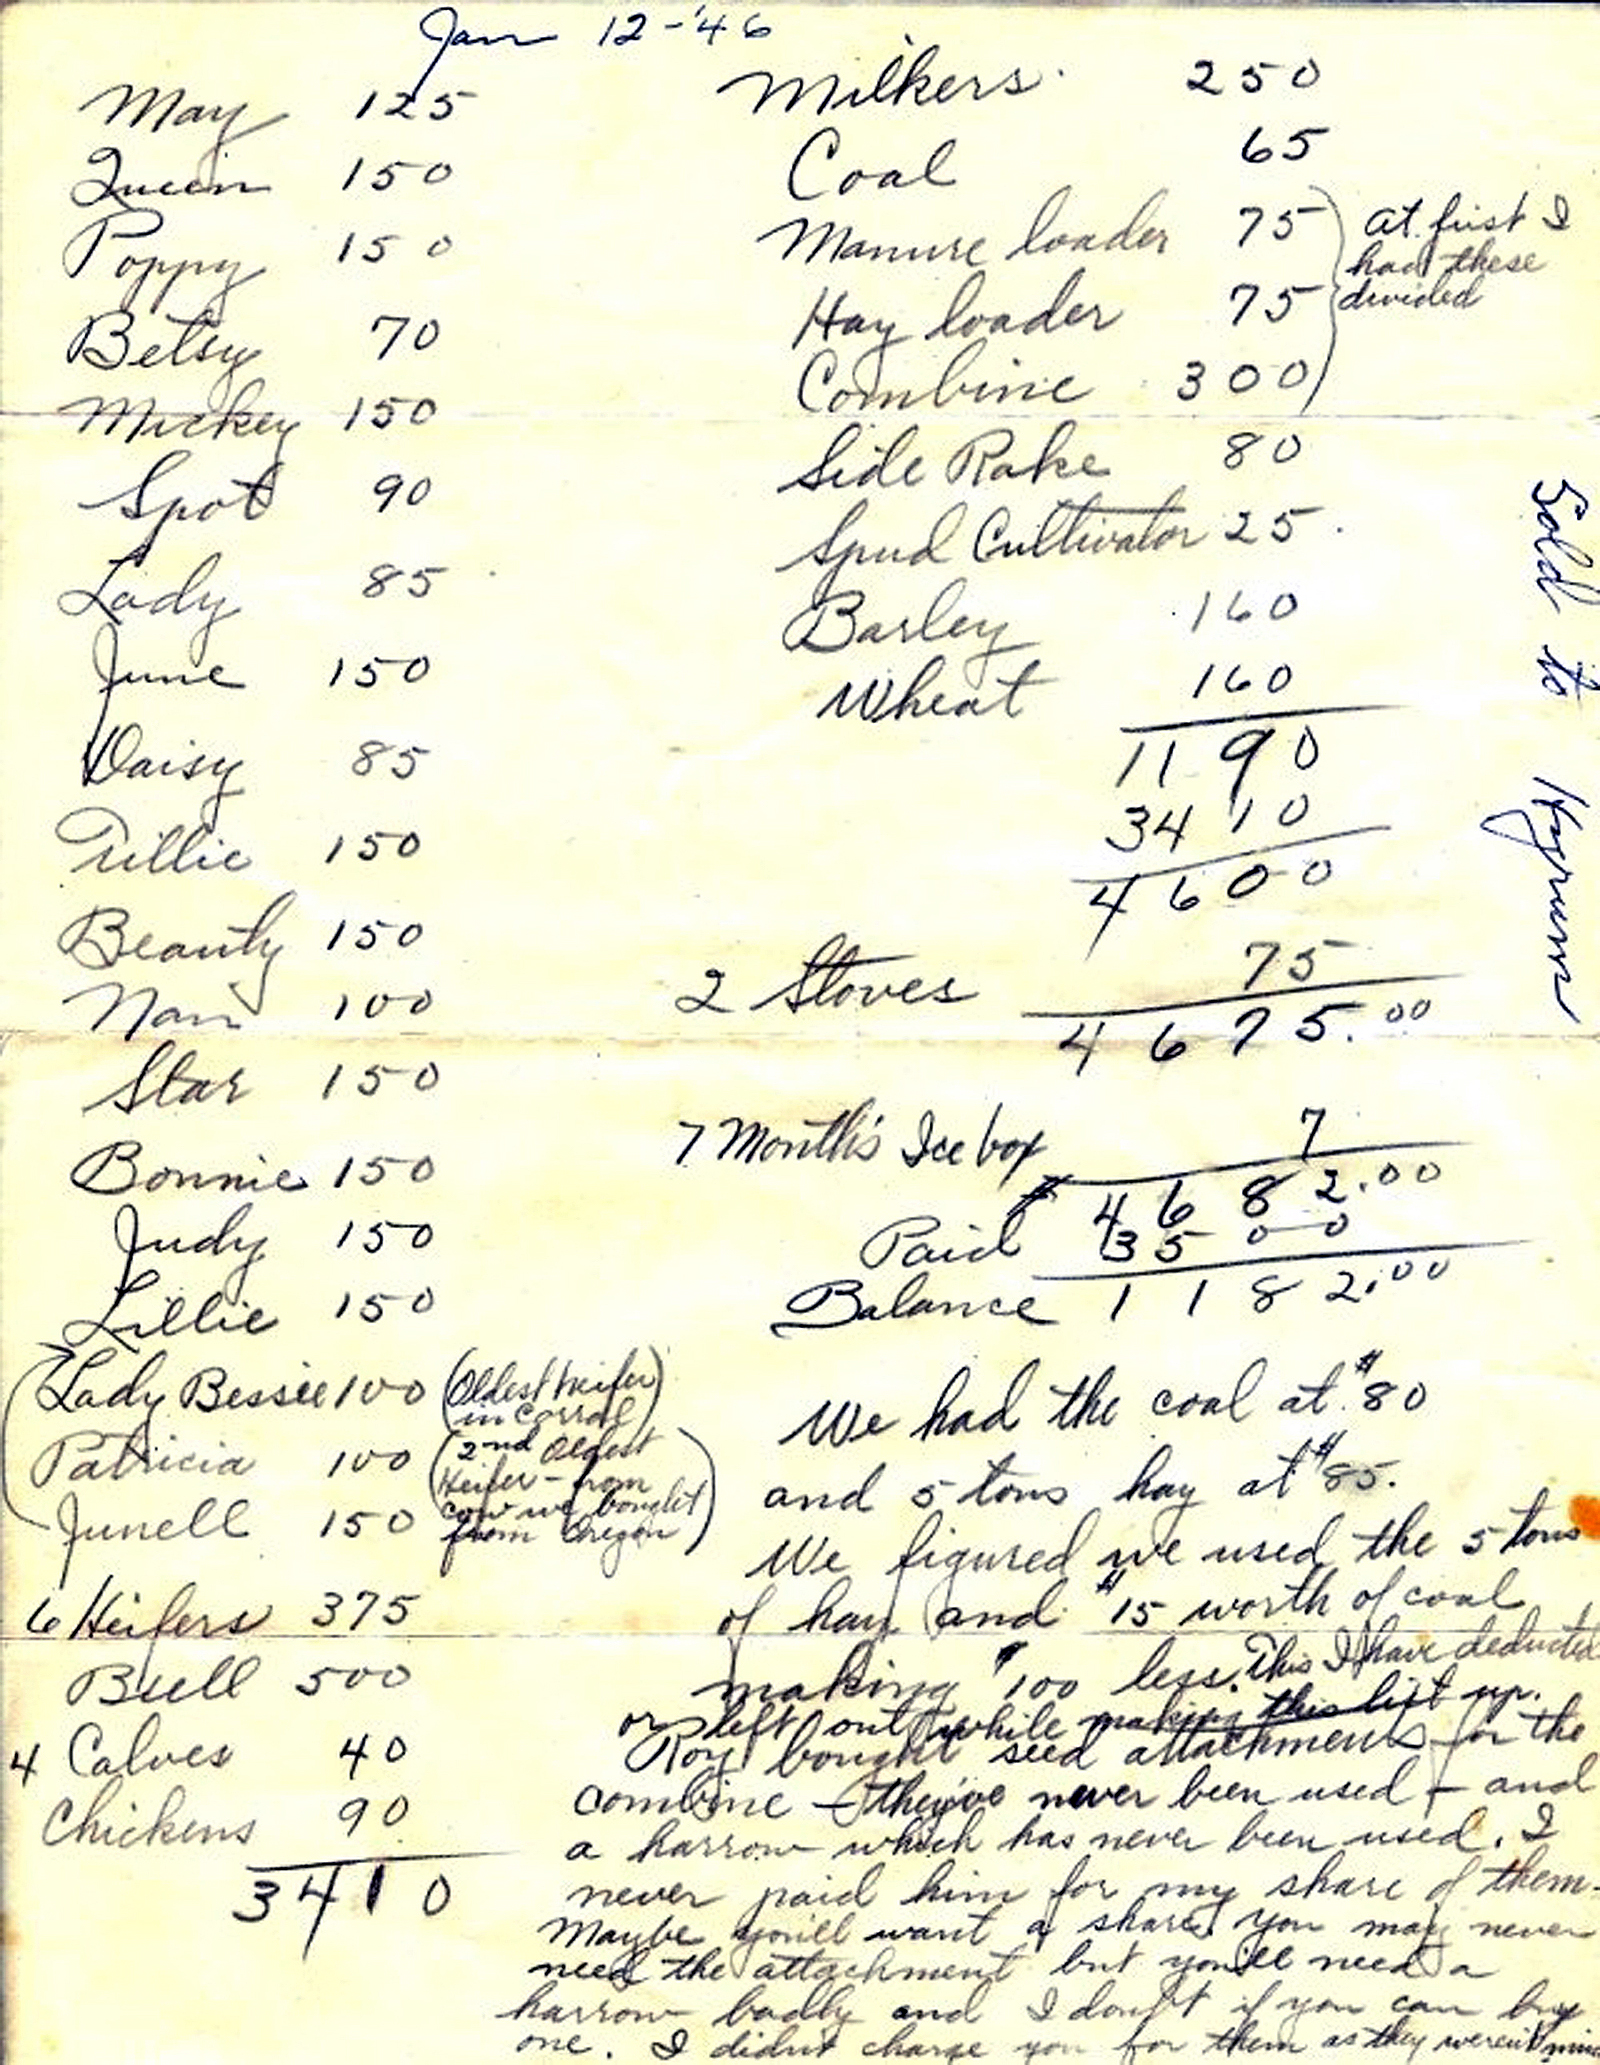 Jan 12-'46
May 125
Queen 150
Poppy 150
Betsy 70
Mickey 150
Spot 90
Lady 85
June 150
Daisy 85
Tillie 150
Beauty 150
Nan 100
Star 150
Bonnie 150
Judy 150
Lillie 150
Lady Bessie 100 (Oldest heifer in corral)
Patricia 100 (2nd oldest Heifer - from cow we bought from Oregon)
Junell 150
6 Heifers 375
Bull 500
4 Calves 40
Chickens 90
3410
Milkers 250
Coal 65
Manure loader 75
Hay loader 75
Combine 300
At first I
had these
divided
Side Rake 80
Spud Cultivator 25
Barley 160
Wheat 160
1190
3410
4600
2 Stoves 75
4675.00
7 Month's Ice box 7
$ 4682.00
Paid 3500
Balance 1182.00
We had the coal at $80
and 5 tons hay at $85.
We figured we used the 5 tons
of hay and $15 worth of coal
making $100 less. This I have deducted
or left out while making this list up.
Roy bought seed attachments for the
combine - they've never been used - and
a harrow which has never been used. I
never paid him for my share of them.
Maybe you'll want a share. You may never
need the attachment but you'll need a
harrow badly and I doubt if you can buy
one. I didn't charge you for them as they weren't mine
Sold to Hyrum